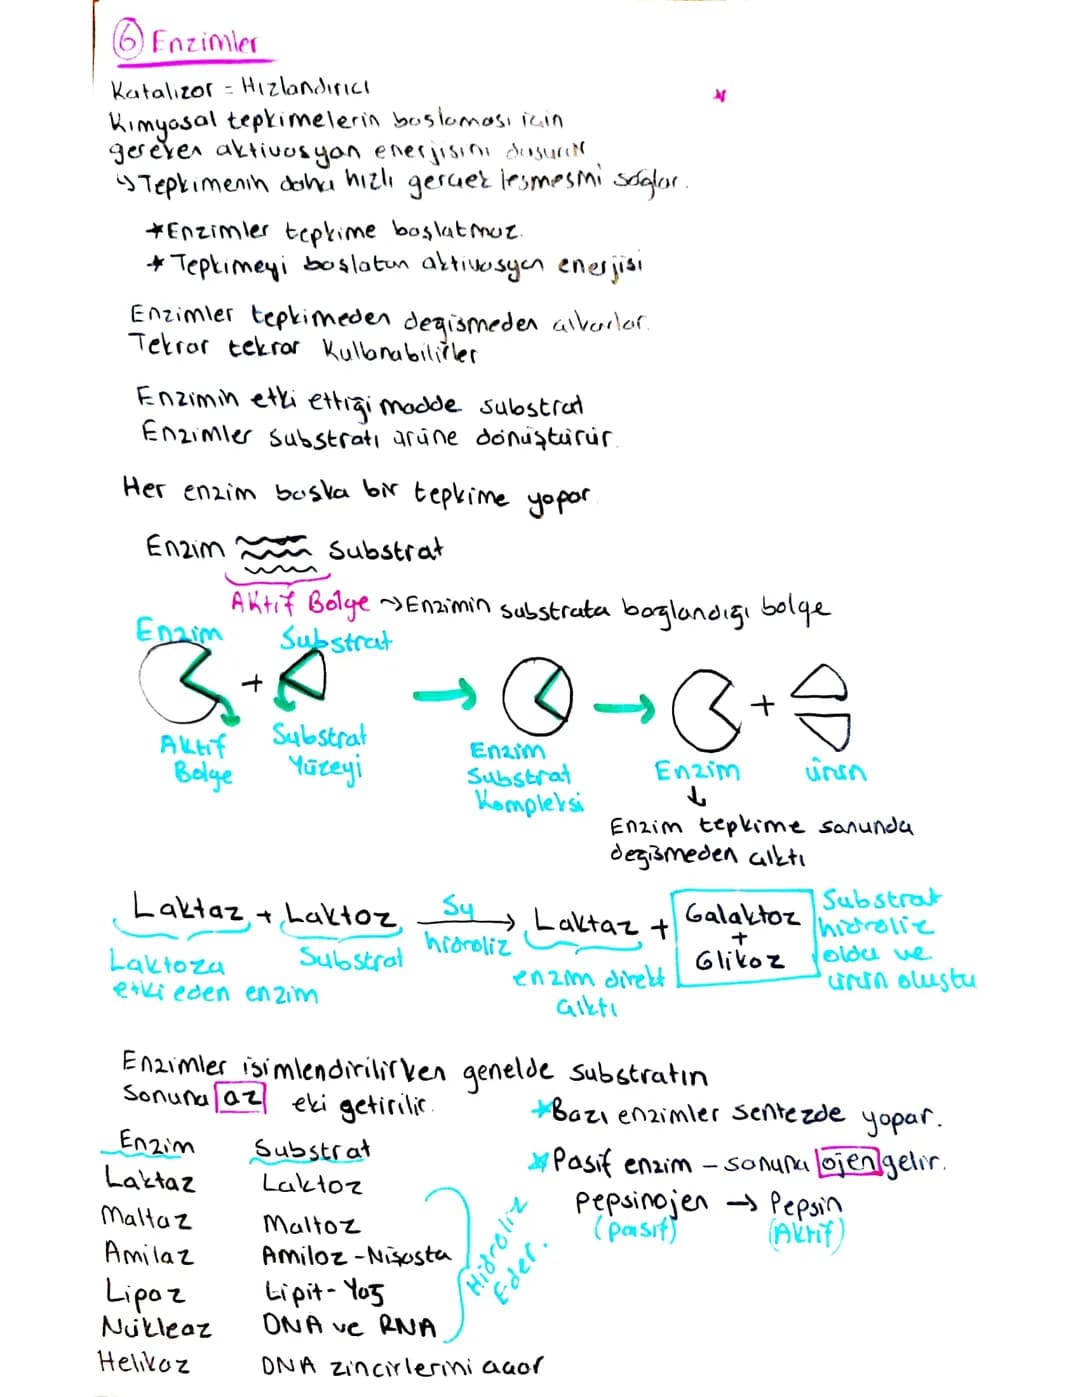 6 Enzimler
Katalizor = Hızlandırıcı
Kimyasal tepkimelerin baslaması için
gereken aktivasyon enerjisini düşürür
↳ Tepkimenin daha hızlı gerçekleşmesini sağlar.
*Enzimler tepkime başlatmaz.
* Tepkimeyi başlatan aktivasyon enerjisi
Enzimler tepkimeden değişmeden çıkarlar.
Tekrar tekrar Kullanabilirler
Enzimin etki ettiği madde substrat
Enzimler substratı ürüne dönüştürür.
Her enzim baska bir tepkime yapar.
Enzim Substrat
Aktif Bölge → Enzimin substrata bağlandığı bölge
Enzim Substrat
+ → → +
Aktif Bolge Substrat Yüzeyi Enzim Substrat Kompleksi Enzim ürün
↓
Enzim tepkime sonunda
değişmeden çıktı
Laktaz + Laktoz Su hidroliz → Laktaz + Galaktoz + Glikoz
Laktoza etki eden enzim Substrat enzim direkt çıktı
Substrat hidroliz oldu ve ürün oluştu
Enzimler isimlendirilirken genelde substratın
Sonuna az eki getirilir.
*Bazı enzimler sentezde yapar.
*Pasif enzim - sonuna ojen gelir.
Pepsinojen → Pepsin
(pasif) (Aktif)
Enzim Substrat
Laktaz Laktoz
Maltaz Maltoz
Amilaz Amiloz - Nişasta
Lipaz Lipit - Yağ
Nükleaz DNA ve RNA
Hidroliz Eder.
Helikaz DNA zincirlerini açar